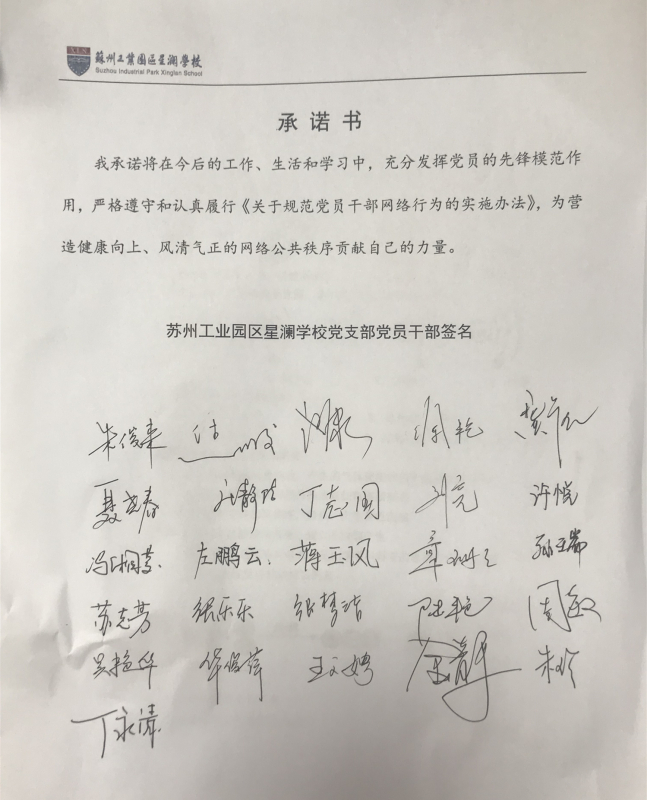 蘇州工業園區星瀾學校
Suzhou Industrial Park Xinglan School
承诺书
我承诺将在今后的工作、生活和学习中，充分发挥党员的先锋模范作
用，严格遵守和认真履行《关于规范党员干部网络行为的实施办法》，为营
造健康向上、风清气正的网络公共秩序贡献自己的力量。
苏州工业园区星澜学校党支部党员干部签名
朱俊来
丁志国 许悦
左鹏云 蒋玉凤
苏志芳 张乐乐 张梦洁 陆艳 周敏
吴艳华 华俊萍 王文娉 朱珍
丁永清